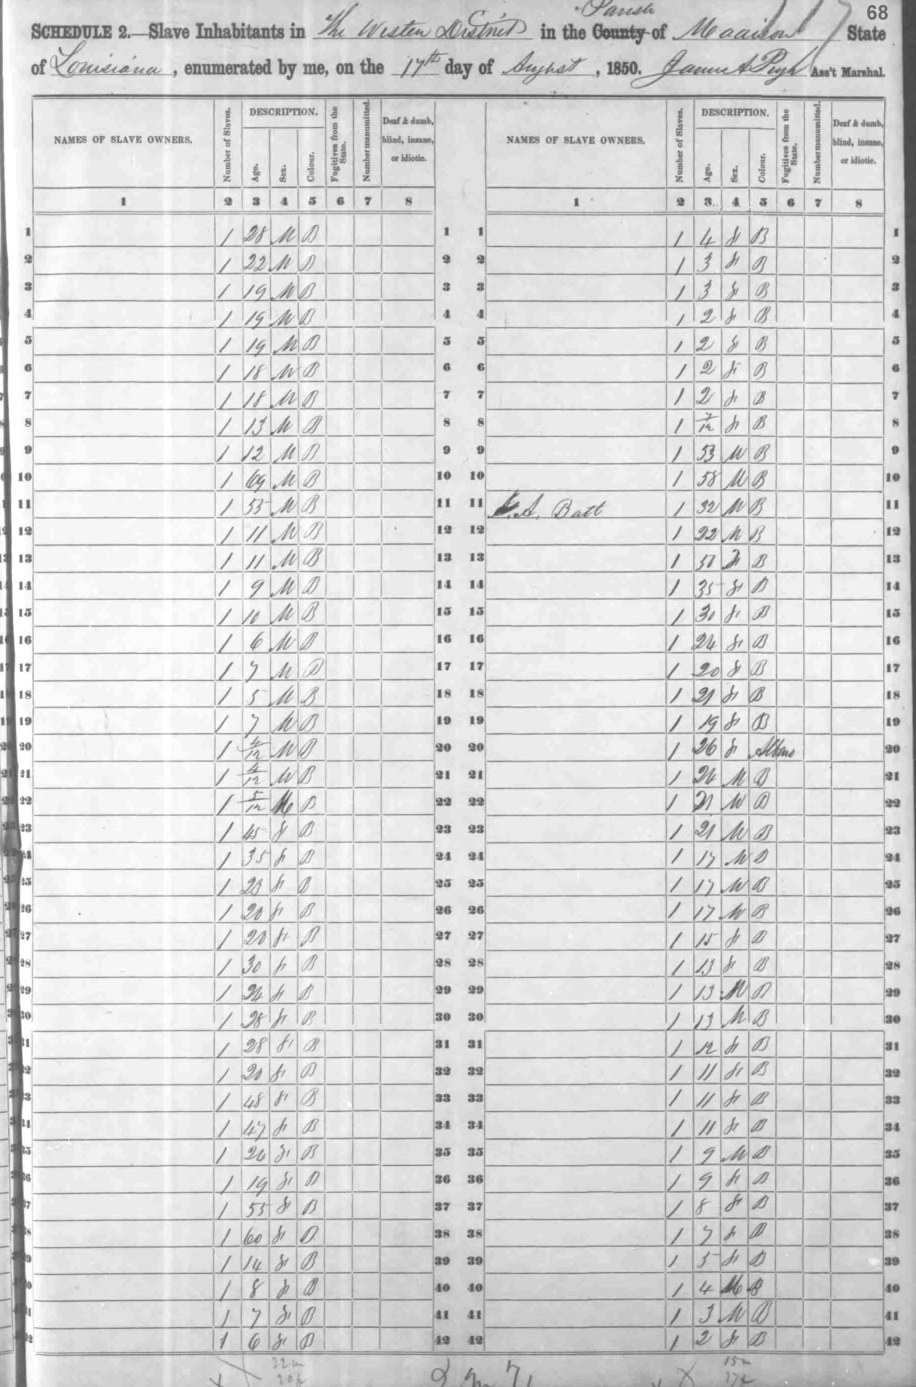 68
SCHEDULE 2.—Slave Inhabitants in The Western District in the County of Parish Madison State
of Louisiana, enumerated by me, on the 17th day of August, 1850. James A Pugh Ass't Marshal.
NAMES OF SLAVE OWNERS. Number of Slaves. DESCRIPTION. Age. Sex. Colour. Fugitives from the State. Number manumitted. Deaf & dumb, blind, insane, or idiotic. NAMES OF SLAVE OWNERS. Number of Slaves. DESCRIPTION. Age. Sex. Colour. Fugitives from the State. Number manumitted. Deaf & dumb, blind, insane, or idiotic.
1 2 3 4 5 6 7 8 1 2 3 4 5 6 7 8
1 1 28 M B 1 1 1 4 f B 1
2 1 22 M B 2 2 1 3 f B 2
3 1 19 M B 3 3 1 3 f B 3
4 1 19 M B 4 4 1 2 f B 4
5 1 19 M B 5 5 1 2 f B 5
6 1 18 M B 6 6 1 2 f B 6
7 1 18 M B 7 7 1 2 f B 7
8 1 13 M B 8 8 1 /12 f B 8
9 1 12 M B 9 9 1 53 M B 9
10 1 69 M B 10 10 1 58 M B 10
11 1 55 M B 11 11 A. Batt 1 32 M B 11
12 1 11 M B 12 12 1 22 M B 12
13 1 11 M B 13 13 1 50 f B 13
14 1 9 M B 14 14 1 35 f B 14
15 1 10 M B 15 15 1 30 f B 15
16 1 6 M B 16 16 1 24 f B 16
17 1 7 M B 17 17 1 20 f B 17
18 1 5 M B 18 18 1 21 f B 18
19 1 7 M B 19 19 1 19 f B 19
20 1 /12 M B 20 20 1 26 f Albino 20
21 1 /12 M B 21 21 1 26 M B 21
22 1 5/12 M B 22 22 1 21 M B 22
23 1 45 f B 23 23 1 21 M B 23
24 1 35 f B 24 24 1 17 M B 24
25 1 23 f B 25 25 1 17 M B 25
26 1 20 f B 26 26 1 17 M B 26
27 1 20 f B 27 27 1 15 f B 27
28 1 30 f B 28 28 1 13 f B 28
29 1 24 f B 29 29 1 13 M B 29
30 1 28 f B 30 30 1 13 M B 30
31 1 28 f B 31 31 1 12 f B 31
32 1 20 f B 32 32 1 11 f B 32
33 1 48 f B 33 33 1 11 f B 33
34 1 47 f B 34 34 1 11 f B 34
35 1 26 f B 35 35 1 9 M B 35
36 1 19 f B 36 36 1 9 f B 36
37 1 55 f B 37 37 1 8 f B 37
38 1 60 f B 38 38 1 7 f B 38
39 1 14 f B 39 39 1 5 f B 39
40 1 8 f B 40 40 1 4 M B 40
41 1 7 f B 41 41 1 3 M B 41
42 1 6 f B 42 42 1 2 f B 42
22m 15m
20f 27f